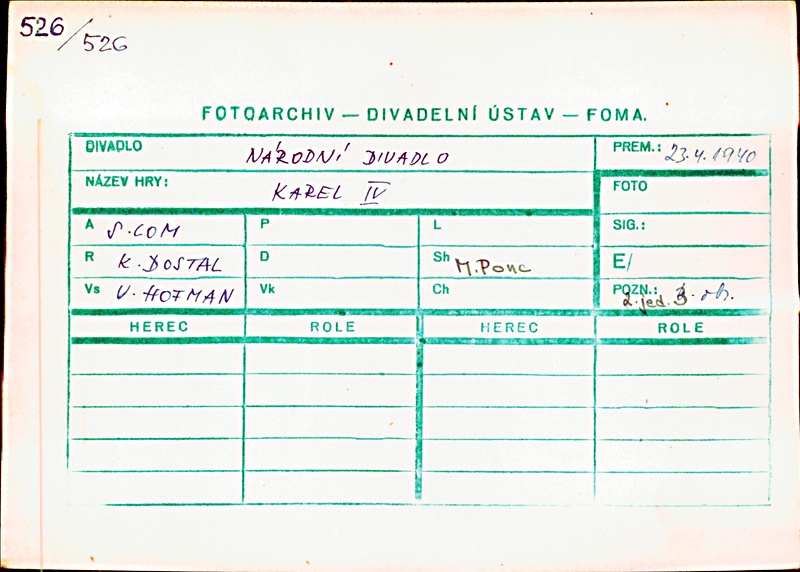 526/526
FOTOARCHIV — DIVADELNÍ ÚSTAV — FOMA.
DIVADLO NÁRODNÍ DIVADLO PREM.: 23.4.1940
NÁZEV HRY: KAREL IV FOTO
A S. LOM P L SIG.:
R K. DOSTAL D Sh M. Ponc E/
Vs V. HOFMAN Vk Ch POZN.: 2. jed. 3. ob.
HEREC ROLE HEREC ROLE